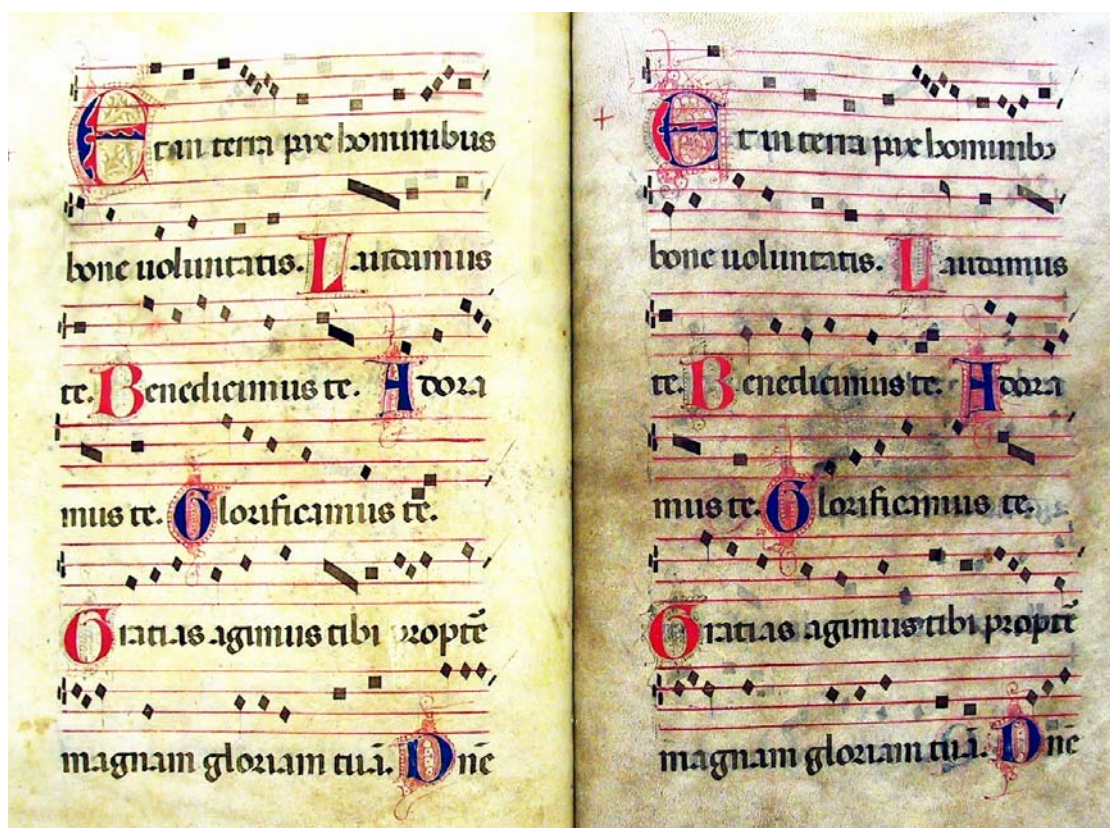 Et in terra pax hominibus
bone uoluntatis. Laudamus
te. Benedicimus te. Adora
mus te. Glorificamus te.
Gratias agimus tibi propte᷒
magnam gloriam tuā. Dn̄e
Et in terra pax hominibꝯ
bone uoluntatis. Laudamus
te. Benedicimus te. Adora
mus te. Glorificamus te.
Gratias agimus tibi propt̄
magnam gloriam tuā. Dn̄e